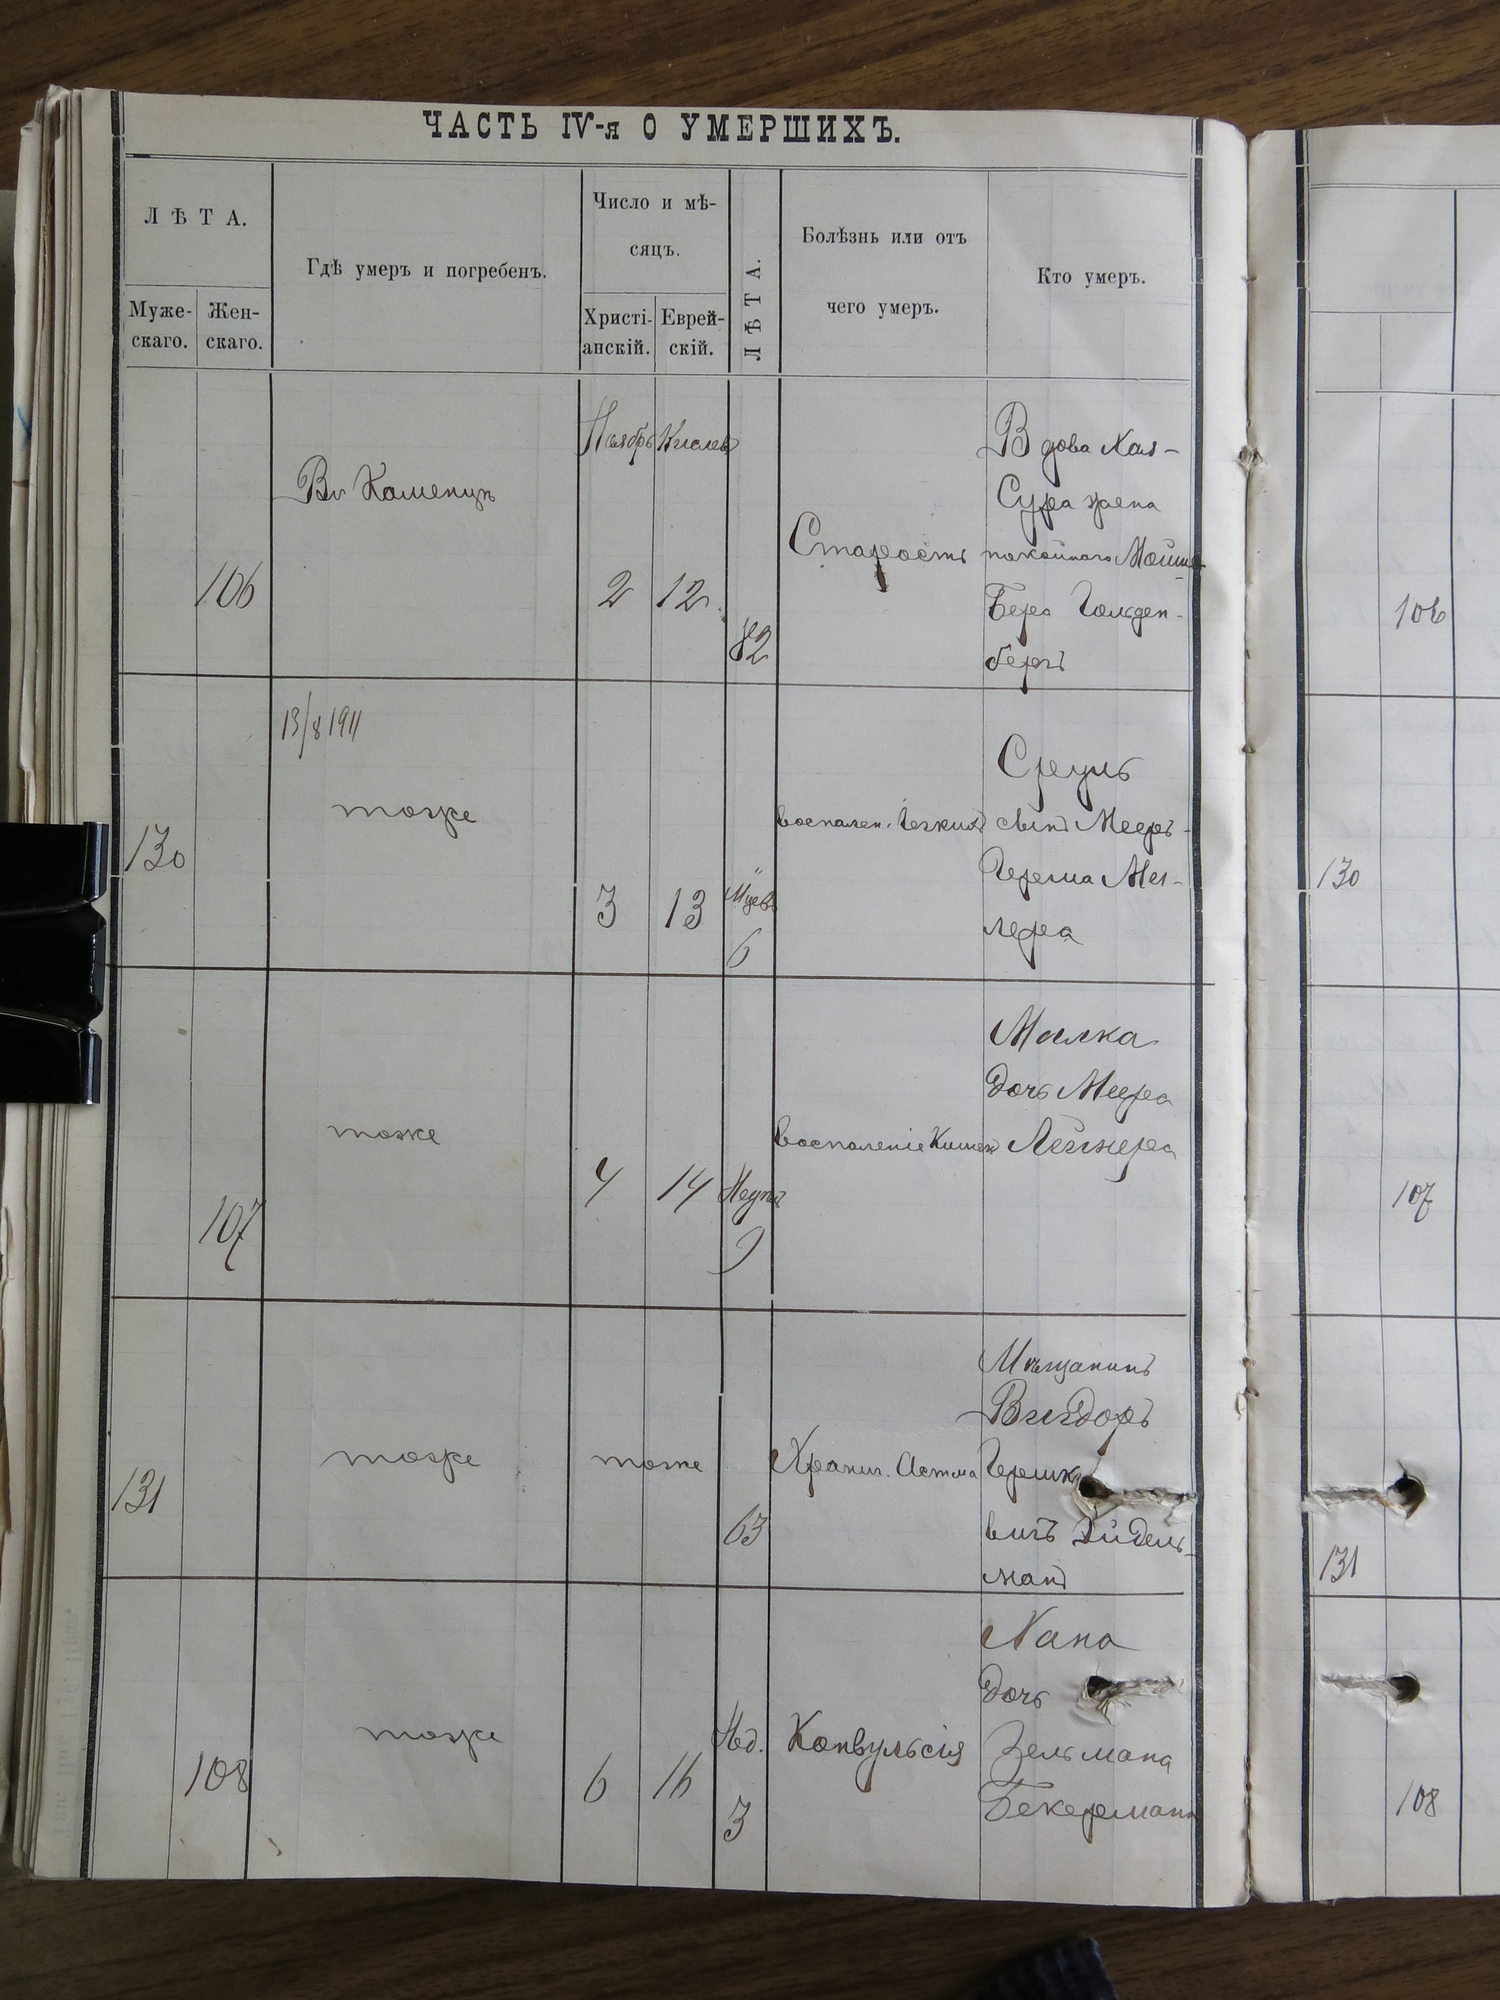 ЧАСТЬ IV-я О УМЕРШИХЪ.
ЛѢТА.
Муже-
скаго.
Жен-
скаго.
Гдѣ умеръ и погребенъ.
Число и мѣ-
сяцъ.
Христі-
анскій.
Еврей-
скій.
ЛѢТА.
Болѣзнь или отъ
чего умеръ.
Кто умеръ.
106
Въ Каменцѣ
Ноябрь
2
Кислев
12
82
Старость
Вдова Хая-
Сура жена
покойного Мойше-
Бера Гольден-
бергъ
106
130
13/8 1911
тоже
3
13
Мцевъ
6
воспален. легкихъ
Сруль
сынъ Меер-
Герша Мел-
лера
130
107
тоже
4
14
9
воспаленіе Кишек
Малка
дочь Меера
107
131
тоже
тоже
63
Хронич. Астма
Мѣщанинъ
Вигдоръ
Гершко
вичъ Эйдель-
манъ
131
108
тоже
6
16
Нед.
3
Конвульсія
Хана
дочь
Зельмана
Бекермана
108